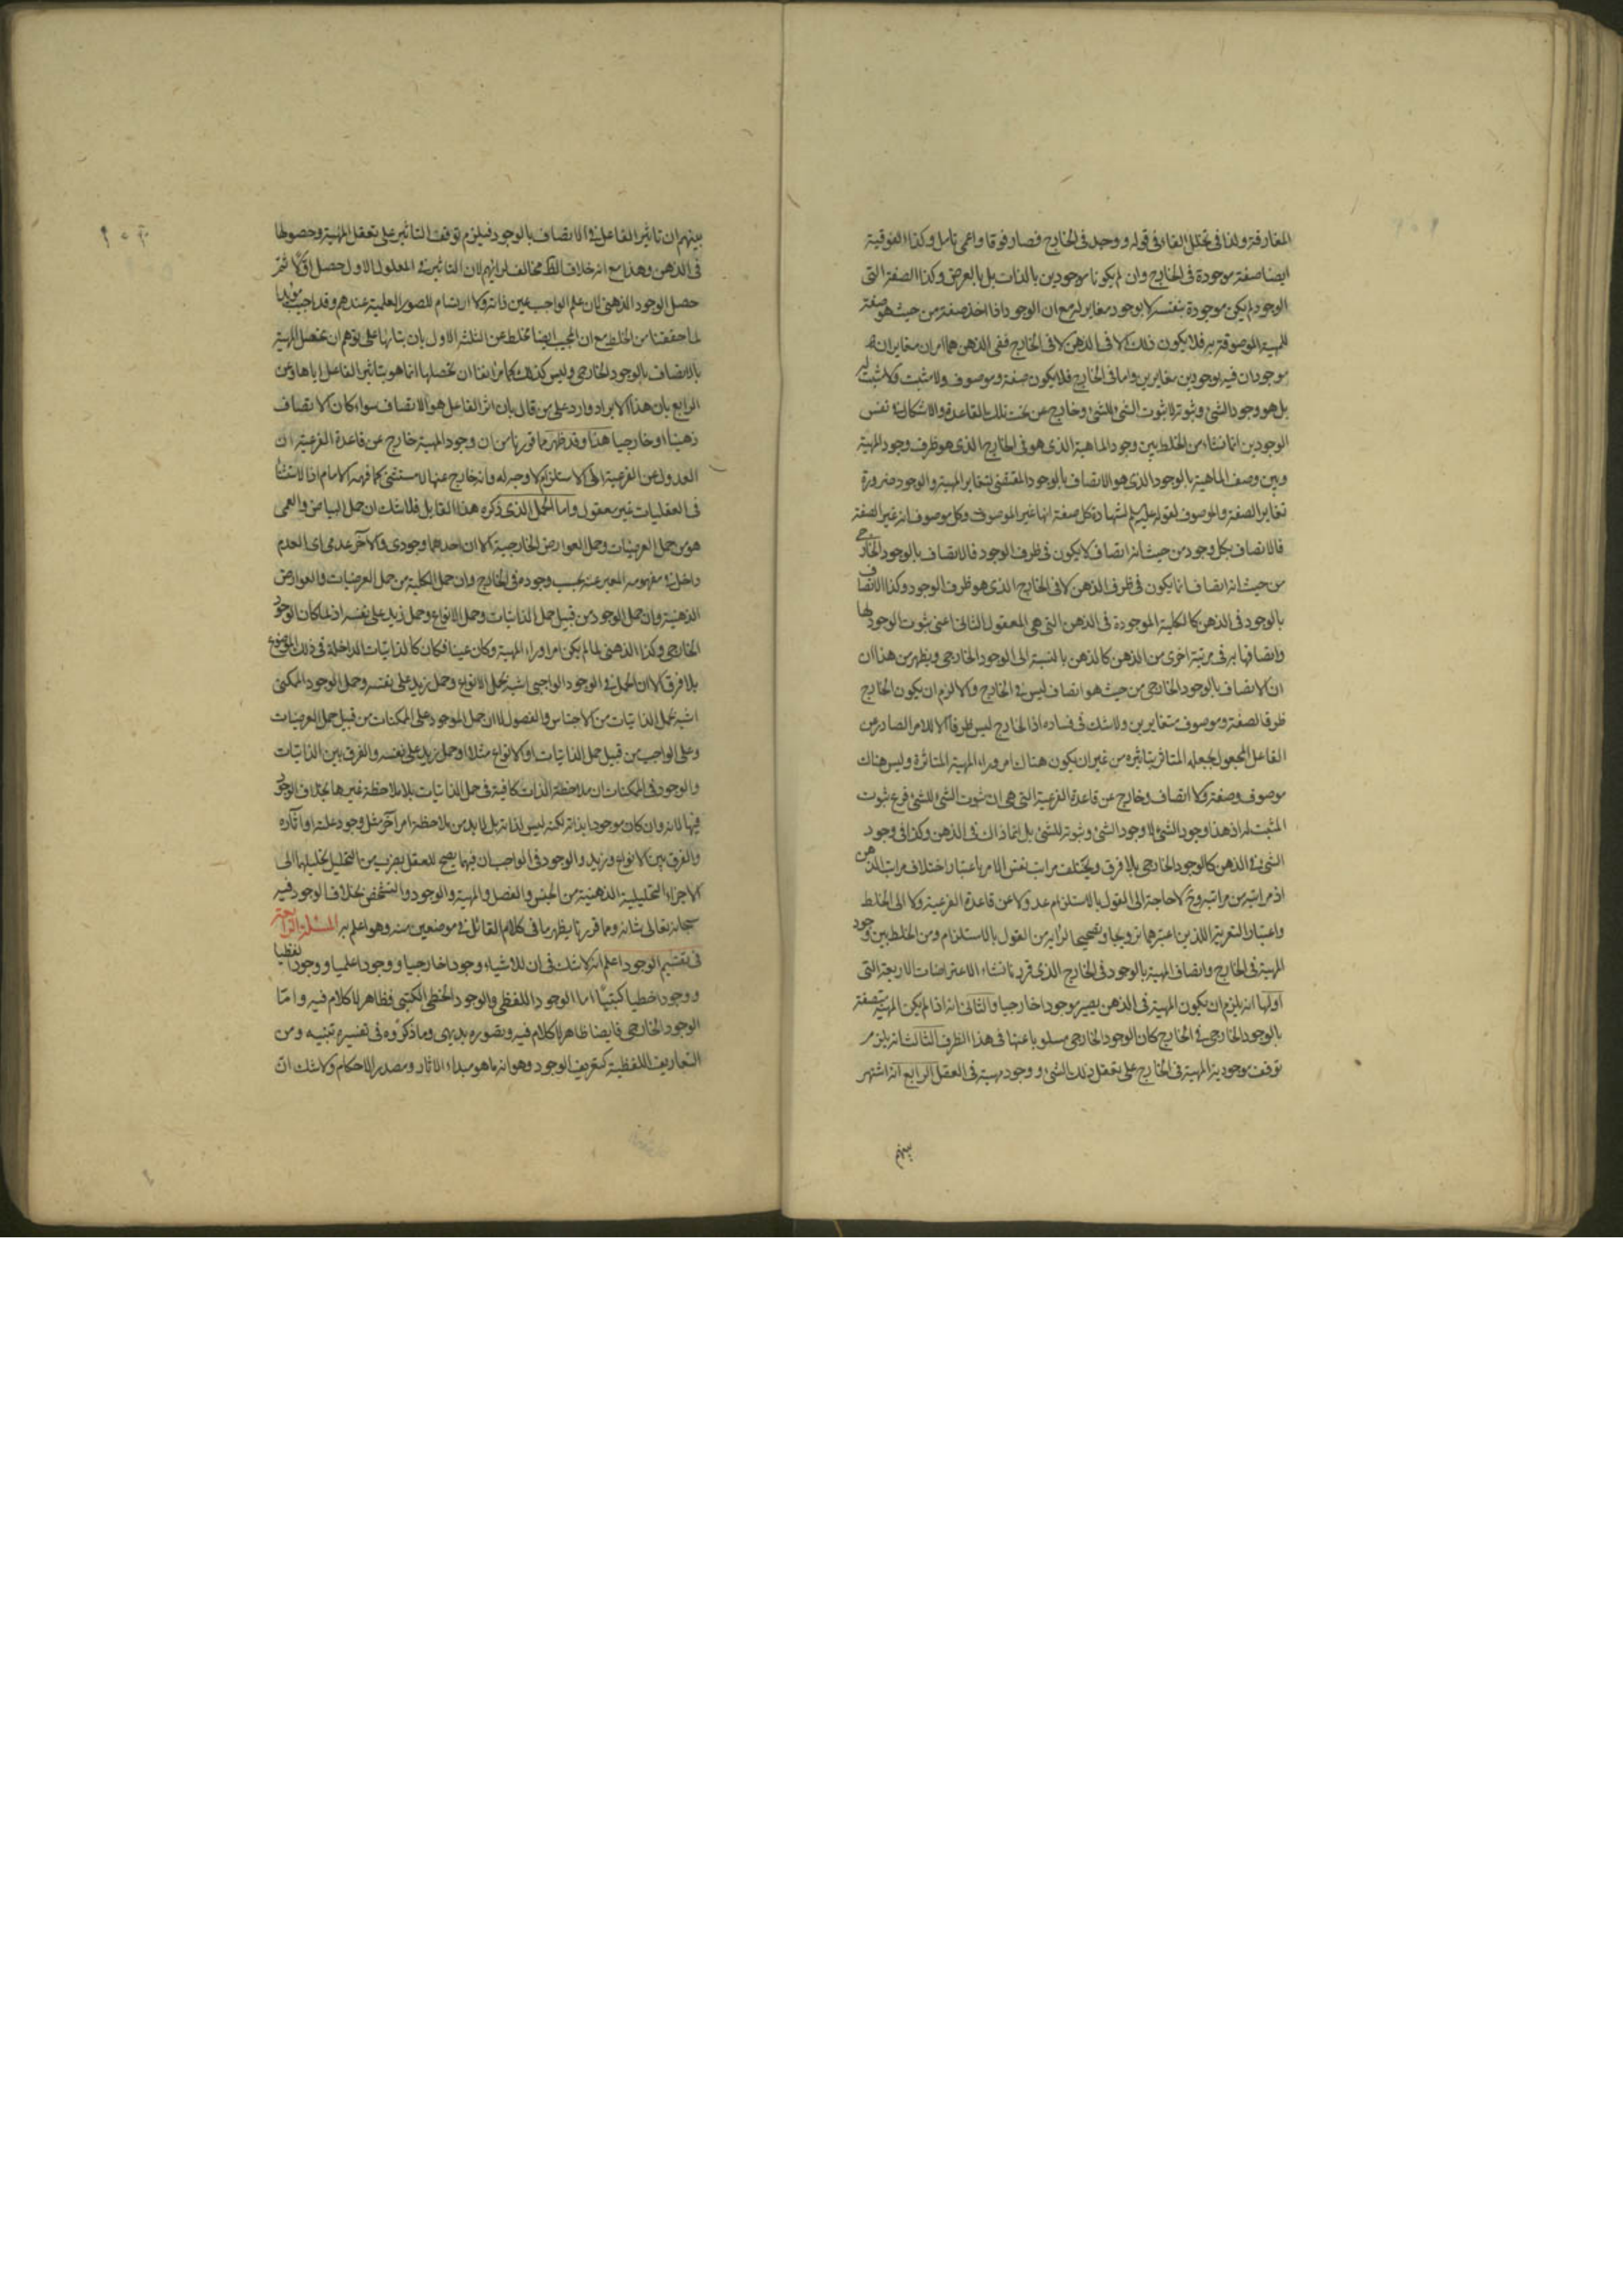 المفارقة ولذا في تخلل الفاء في قوله ووجد في الخارج فصار فوقا واعمى تامل وكذا الفوقية
ايضا صفة موجودة في الخارج وان لم يكونا موجودين بالذات بل بالعرض وكذا الصفة التي
الوجود لم يكن موجودة بنفسه لا بوجود مغاير له مع ان الوجود اذا اخذ صفة من حيث هو صفة
للمهية الموصوفة به فلا يكون ذلك الا في الذهن لا في الخارج ففي الذهن هما امران مغايران
موجودان فيه بوجودين مغايرين واما في الخارج فلا يكون صفة وموصوف ولا مثبت ولا مثبت له
بل هو وجود الشئ وثبوته لا ثبوت الشئ للشئ وخارج عن تحت تلك القاعدة والاشكال في نفس
الوجودين انما نشاء من الخلط بين وجود الماهية الذي هو في الخارج الذي هو ظرف وجود المهية
وبين وصف الماهية بالوجود الذي هو الاتصاف بالوجود المقتضي لتغاير المهية والوجود ضرورة
تغاير الصفة والموصوف لقوله عليه لشهادة كل صفة انها غير الموصوف وكل موصوف انه غير الصفة
فالاتصاف بكل وجود من حيث انه اتصاف لا يكون في ظرف الوجود فالاتصاف بالوجود الخارجي
من حيث انه اتصاف انما يكون في ظرف الذهن لا في الخارج الذي هو ظرف الوجود وكذا الاتصاف
بالوجود في الذهن كالكلية الموجودة في الذهن التي هي المعقول الثاني اعني ثبوت الوجود لها
واتصافها به في مرتبة اخرى من الذهن كالذهن بالنسبة الى الوجود الخارجي ويظهر من هذا ان
ان الاتصاف بالوجود الخارجي من حيث هو اتصاف ليس في الخارج والا لزم ان يكون الخارج
ظرفا لصفة وموصوف متغايرين ولا شك في فساده اذا الخارج ليس ظرفا الا للامر الصادر من
الفاعل المجعول بجعله المتاثر بتاثيره من غير ان يكون هناك امر وراء المهية المتاثرة وليس هناك
موصوف وصفة ولا اتصاف وخارج عن قاعدة الفرعية التي هي ان ثبوت الشئ للشئ فرع ثبوت
المثبت له اذ هذا وجود الشئ لا وجود الشئ وثبوته للشئ بل انما ذاك في الذهن وكذا في وجود
الشئ في الذهن كالوجود الخارجي بلا فرق ويختلف مراتب نفس الامر باعتبار اختلاف مراتب الذهن
اذ مراتبه من مراتبه وح لا حاجة الى القول بالاستلزام عدولا عن قاعدة الفرعية ولا الى الخلط
واعتبار التعرية اللذين اعتبرهما ترويجا وتصحيحا لرأيه من القول بالاستلزام ومن الخلط بين وجود
المهية في الخارج واتصاف المهية بالوجود في الخارج الذي قررنا نشاء الاعتراضات الاربعة التي
اولها انه يلزم ان يكون المهية في الذهن يصير موجودا خارجيا والثاني انه اذا لم يكن المهية متصفة
بالوجود الخارجي في الخارج كان الوجود الخارجي مسلوبا عنها في هذا الظرف الثالث انه يلزم
توقف موجودية المهية في الخارج على تعقل ذلك الشئ ووجود مهية في العقل الرابع انه اشتهر
بينهم
بينهم ان تاثير الفاعل في الاتصاف بالوجود فيلزم توقف التاثير على تعقل المهية وحصولها
في الذهن وهذا مع انه خلاف الظ مخالف لرايهم لان التاثير في المعلول الاول حصل اولا ثم
حصل الوجود الذهني لان علم الواجب عين ذاته ولا ارتسام للصور العلمية عندهم وقد اجيب
لما حققنا من الخلط مع ان المجيب ايضا مخلط عن الثلثة الاول بان بنائها على توهم ان تحصل المهية
بالاتصاف بالوجود الخارجي وليس كذلك كما مر انفا ان تحصلها انما هو بتاثير الفاعل اياها وعن
الرابع بان هذا الايراد وارد على من قال بان اثر الفاعل هو الاتصاف سواء كان الاتصاف
ذهنيا او خارجيا هذا وقد ظهر مما قررنا من ان وجود المهية خارج عن قاعدة الفرعية ان
العدول عن الفرعية الى الاستلزام لا وجه له وانه خارج عنها لا مستثنى كما فهمه الامام اذا لاستثناء
في العقليات غير معقول واما الحمل الذي ذكره هذا القايل فلا شك ان حمل البياض والعمى
هو من حمل العرضيات وحمل العوارض الخارجية الا ان احدهما وجودي والاخر عدمي اي العدم
داخل في مفهومه المعبر عنه بحسب وجوده في الخارج وان حمل الكلية من حمل العرضيات والعوارض
الذهنية وان حمل الوجود من قبيل حمل الذاتيات وحمل الانواع وحمل زيد على نفسه اذ لما كان الوجود
الخارجي وكذا الذهني لما لم يكن امرا وراء المهية وكان عينا فكان كالذاتيات الداخلة في ذلك الموضوع
بلا فرق الا ان الحمل في الوجود الواجبي اشبه بحمل الانواع وحمل زيد على نفسه وحمل الوجود الممكني
اشبه بحمل الذاتيات من الاجناس والفصول لا ان حمل الموجود على الممكنات من قبيل حمل العرضيات
وعلى الواجب من قبيل حمل الذاتيات او الانواع مثلا او حمل زيد على نفسه والفرق بين الذاتيات
والوجود في الممكنات ان ملاحظة الذات كافية في حمل الذاتيات بلا ملاحظة غيرها بخلاف الوجود
فيها لانه وان كان موجودا بذاته لكنه ليس لذاته بل لابد من ملاحظة امر آخر مثل وجود علته او آثاره
والفرق بين الانواع وزيد والوجود في الواجب ان فيهما يصح للعقل بضرب من التحليل تحليلها الى
الاجزاء التحليلية الذهنية من الجنس والفصل والمهية والوجود والتشخص بخلاف الوجود فيه
سبحانه تعالى شانه ومما قررنا يظهر ما في كلام القائل في موضعين منه وهو اعلم به المسئلة الرابعة
في تقسيم الوجود اعلم انه لا شك في ان للاشياء وجودا خارجيا ووجودا علميا ووجودا لفظيا
ووجودا خطيا كتبيا اما الوجود اللفظي والوجود الخطي الكتبي فظاهر لا كلام فيه واما
الوجود الخارجي فايضا ظاهر لا كلام فيه وتصوره بديهي وما ذكروه في تفسيره تنبيه ومن
التعاريف اللفظية كتعريف الوجود وهو انه ما هو مبداء الاثار ومصدر الاحكام ولا شك ان